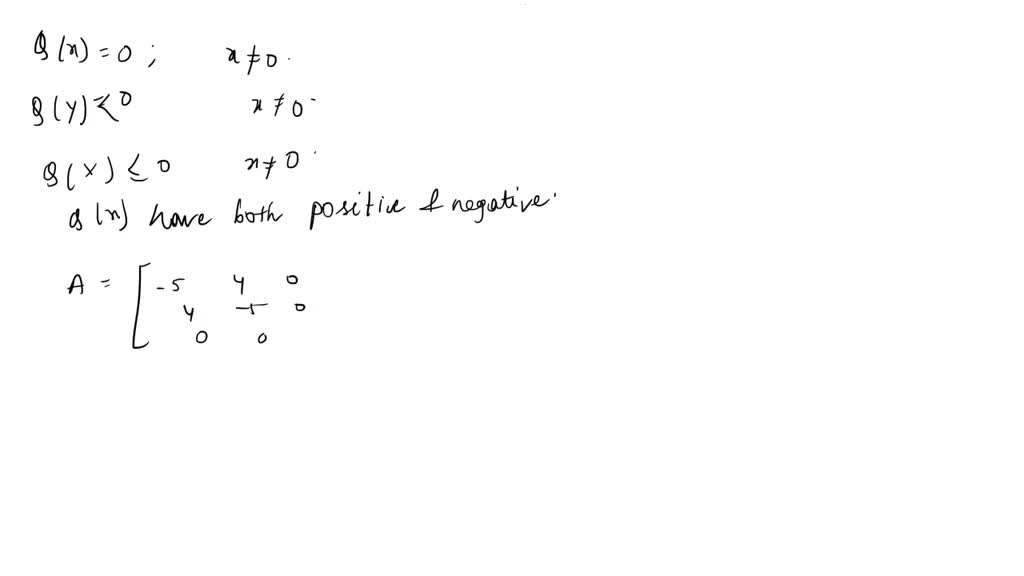 Q(x) = 0 ; x ≠ 0.
Q(y) ≤ 0 x ≠ 0.
Q(x) ≤ 0 x ≠ 0.
Q(x) have both positive & negative.
A = [ -5 4 0
4 -5 0
0 0